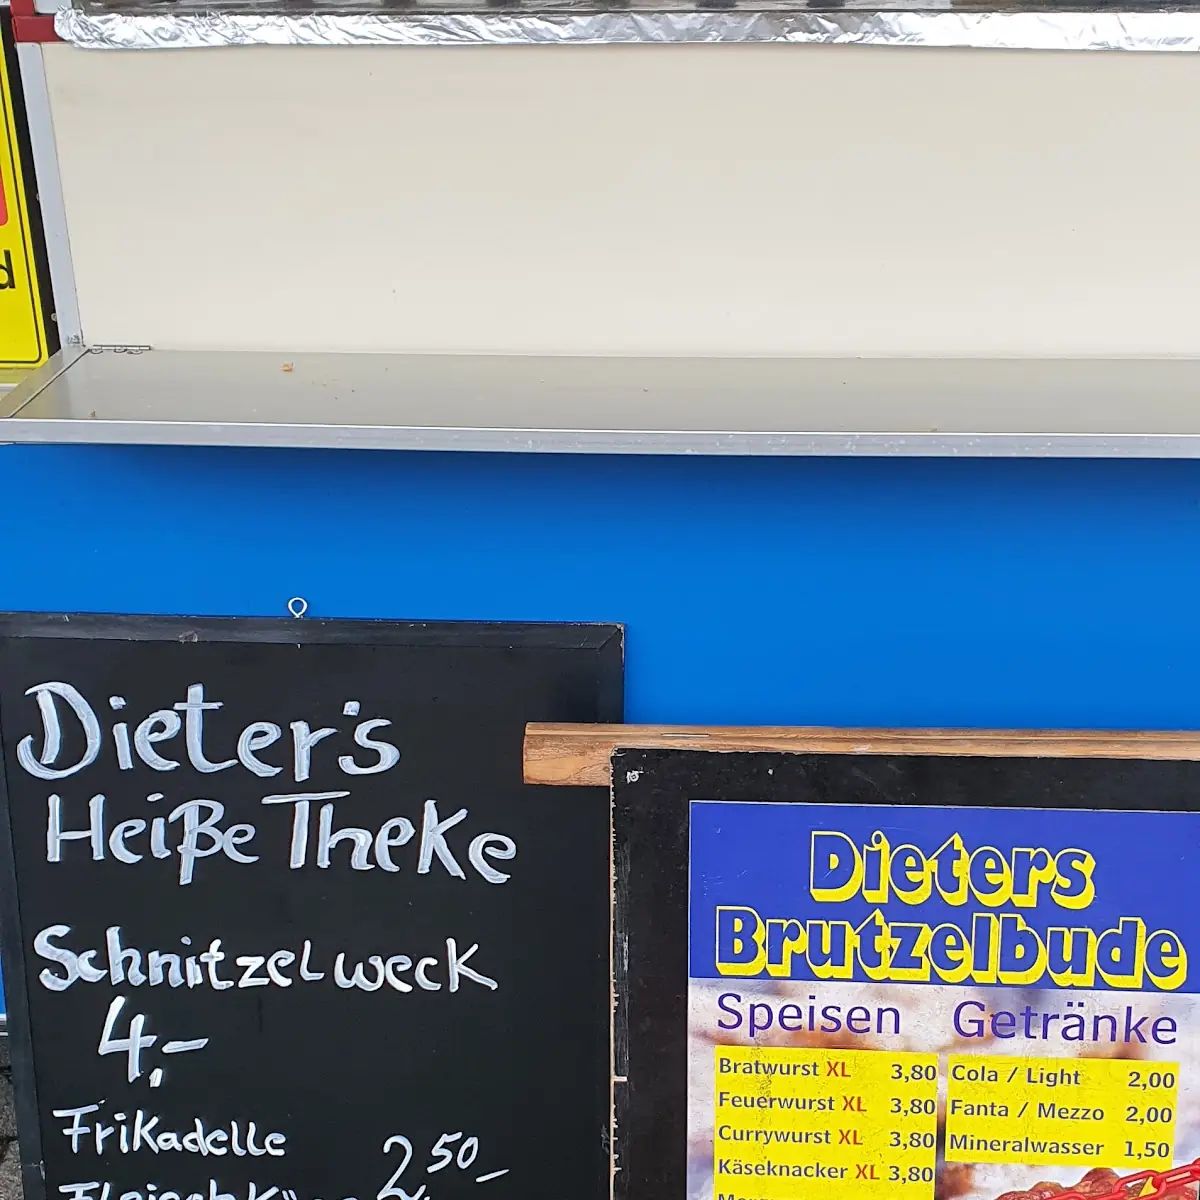 d
Dieter's
Heiße Theke
Schnitzelweck
4,-
Frikadelle
2,50-
Dieters
Brutzelbude
Speisen
Bratwurst XL 3,80
Feuerwurst XL 3,80
Currywurst XL 3,80
Käseknacker XL 3,80
Getränke
Cola / Light 2,00
Fanta / Mezzo 2,00
Mineralwasser 1,50